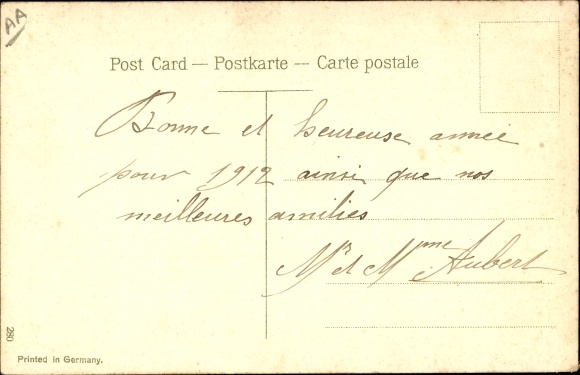 AA
Post Card — Postkarte — Carte postale
Bonne et heureuse année
pour 1912 ainsi que nos
meilleures amitiés
Mr et Mme Aubert
280
Printed in Germany.